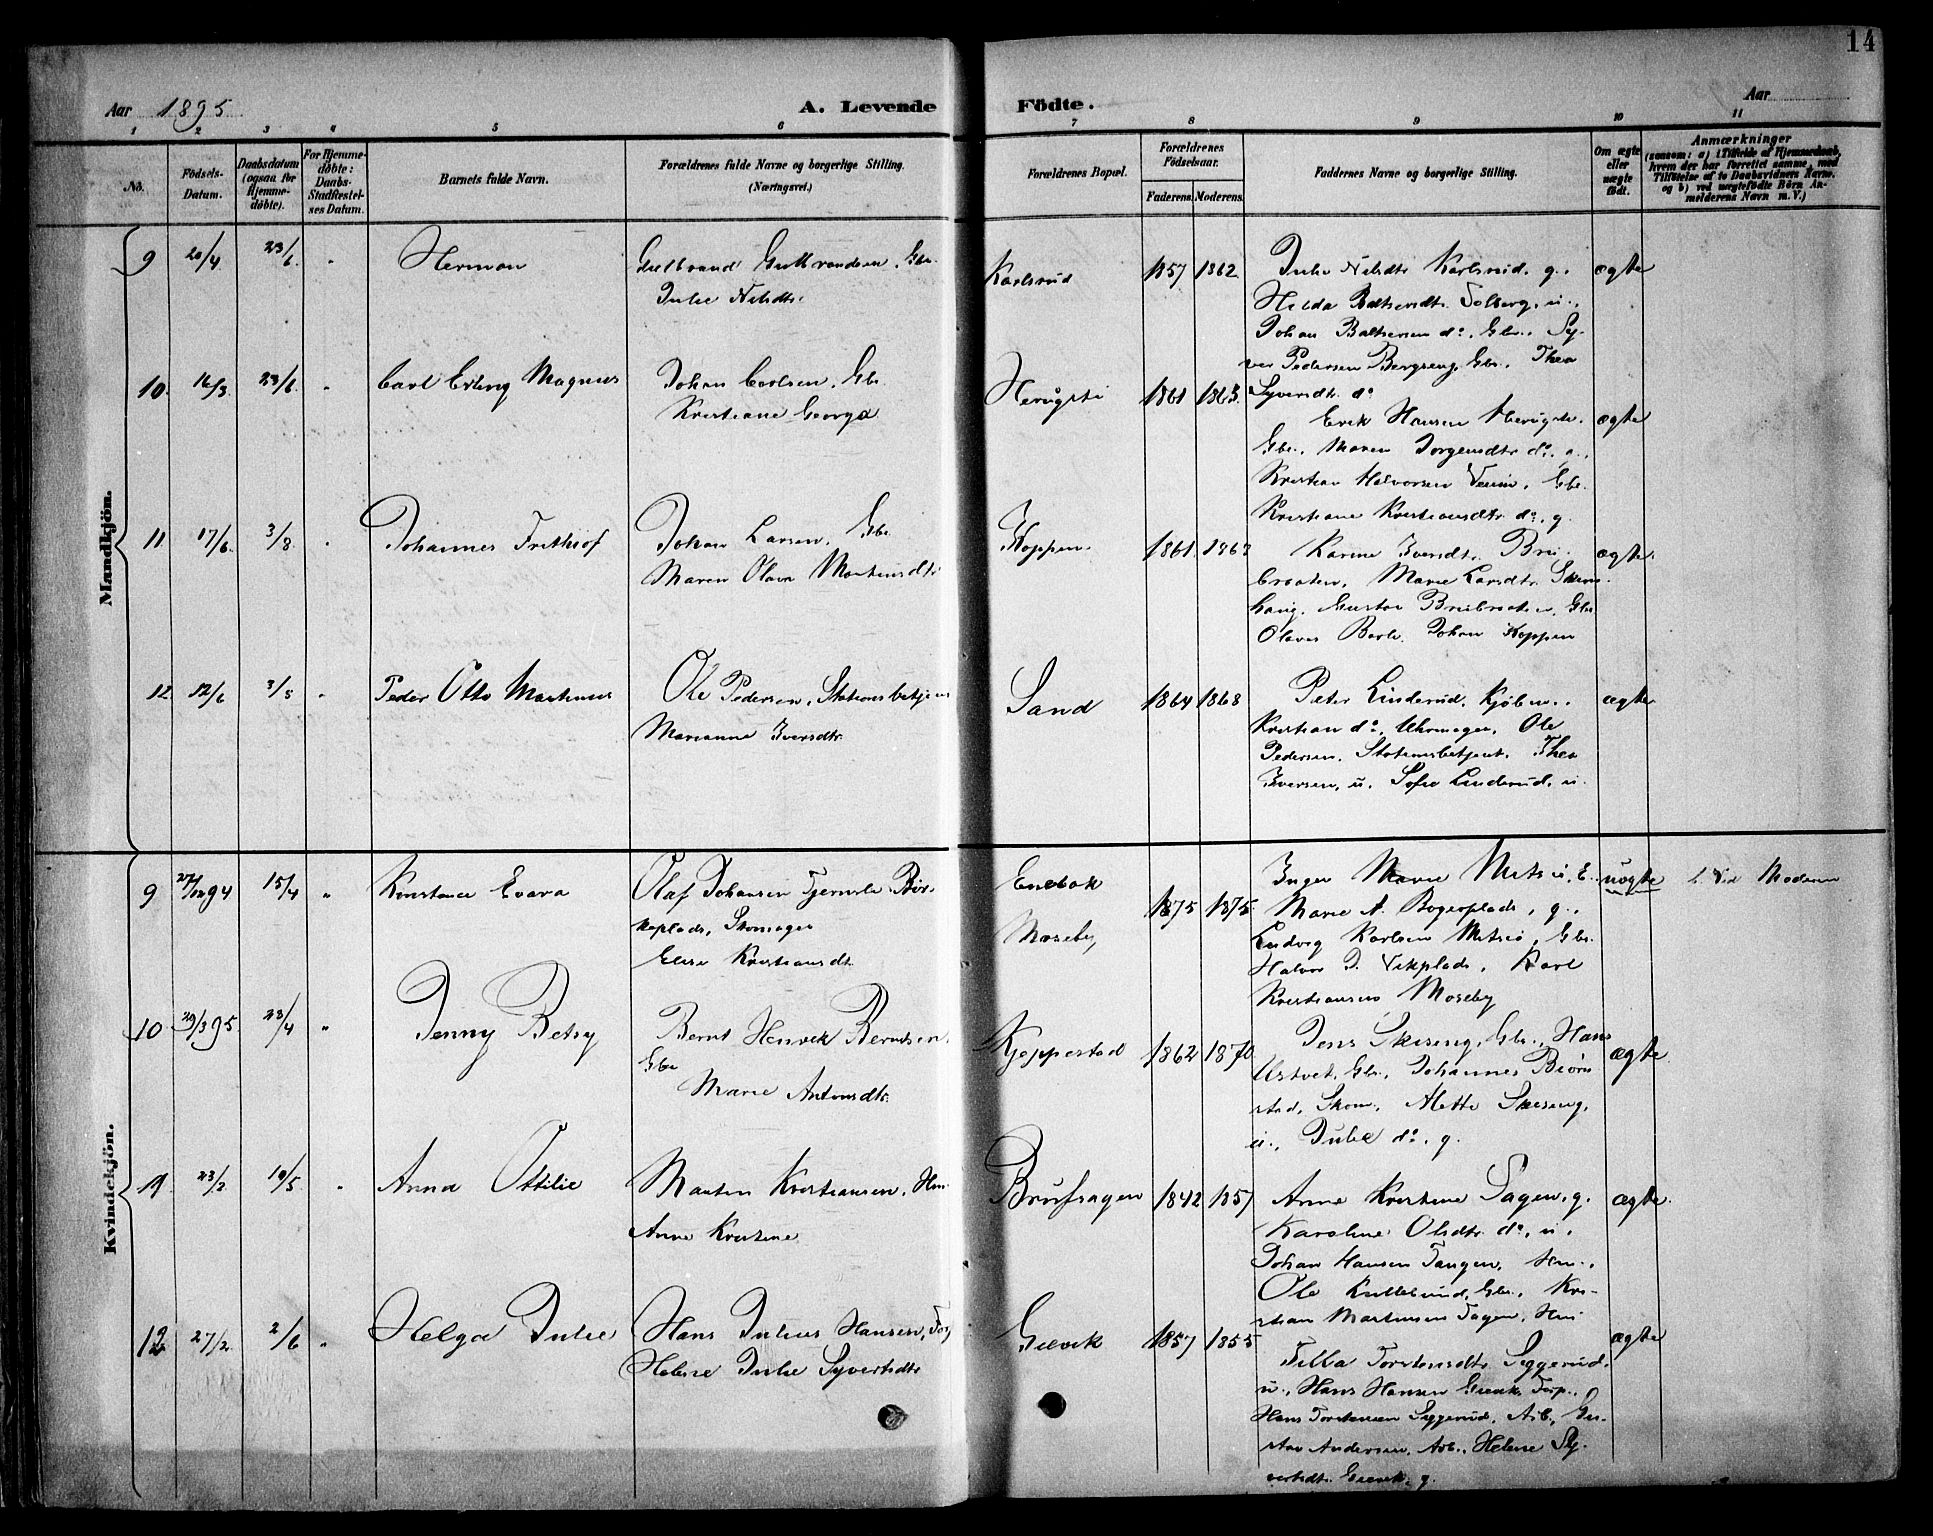 14
Aar 1895
A. Levende
Födte.
Aar
1 2 3 4 5 6 7 8 9 10 11
No.
Födsels-
Datum.
Daabsdatum
(ogsaa for
Hjemme-
döbte).
For Hjemme-
döbte:
Daabs-
Stadfæstel-
ses Datum.
Barnets fulde Navn.
Forældrenes fulde Navne og borgerlige Stilling.
(Næringsvei.)
Forældrenes Bopæl.
Forældrenes
Födselsaar.
Faderens. Moderens.
Faddernes Navne og borgerlige Stilling.
Om ægte
eller
uægte
födt.
Anmærkninger
(saasom: a) i Tilfælde af Hjemmedaab,
hvem der har forrettet samme, med
Tilföielse af to Daabsvidners Navne.
og b) ved uægtefödte Börn An-
melderens Navn m. V.)
Mandkjön.
9 20/4 23/6 " Herman
Gulbrand Gulbrandsen, Gbr.
Julie Nilsdtr.
Karlsrud 1857 1862
Julie Nilsdtr. Karlsrud, g.,
Hilda Baltsersdtr. Tolberg, u.,
Johan Baltsersen do, Gbr., Sy-
ver Pedersen Bergseng, Gbr., Thea
Syversdtr. do
ægte
10. 16/3 23/6 " Carl Erling Magnus
Johan Carlsen, Gbr.
Kristiane Georga
1861 1863.
Erik Hansen
Gbr., Maren Jörgensdtr. do, g.,
Kristian Halvorsen, Gbr.
Kristiane Kristiansdtr. do, g.
ægte
11 17/6. 3/8. " Johannes Frithiof
Johan Larsen, Gbr.
Maren Olava Martinsdtr
Koppen. 1861.
Karine Iversdtr. Bru-
braaten, Marie Larsdtr.
haug, Gustav Brubraaten, Gbr
Olaves Johan Koppen
ægte.
12 12/6 " Peder Otto Martinus
Ole Pedersen, Stationsbetjent
Marianne Iversdtr.
Sand 1864 1868
Peter Linderud, Kjöbm.,
Kristian do, Uhrmager, Ole
Pedersen, Stationsbetjent, Thea
Iversen, u. Sofie Linderud, u.
ægte
Kvindekjön.
9 27/12 94 15/4 "
Olaf Johansen
plads, Skomager
Elise Kristiansdtr.
Enebak
Moseby, 1875 1875.
Inger Marie
Marie A. g.,
Ludvig Karlsen Gbr.
Halvor Karl
Kristiansen Moseby
uægte b. Ved Moderen
10 29/3 95. 23/4 " Jenny Betsy
Bernt Henrik Berntsen,
Gbr
Marie Antonsdtr.
Kjeppestad 1862 1870
Jens Gbr., Hans
Gbr., Johannes Björn-
stad, Skom., Mette
u., Julie do, g.
ægte.
11 23/2 10/5 " Anna Ottilie
Martin Kristiansen, Hm.
Anne Kristine
Brufsagen 1842 1857
Anne Kristine Sagen, g.
Karoline Olsdtr. do, u.
Johan Hansen Tangen, Hm.,
Ole Gbr., Kri-
stian Martinsen Hm
ægte.
12. 27/2. 2/6 " Helga Julie
Hans Julius Hansen,
Helene Julie Syvertsdtr
1857 1855
Torstensdtr. Siggerud,
u., Hans Hansen
Hans Torstensen Siggerud, Arb., Gu-
stav Andersen, Arb., Helene Sy-
vertsdtr. g.
ægte